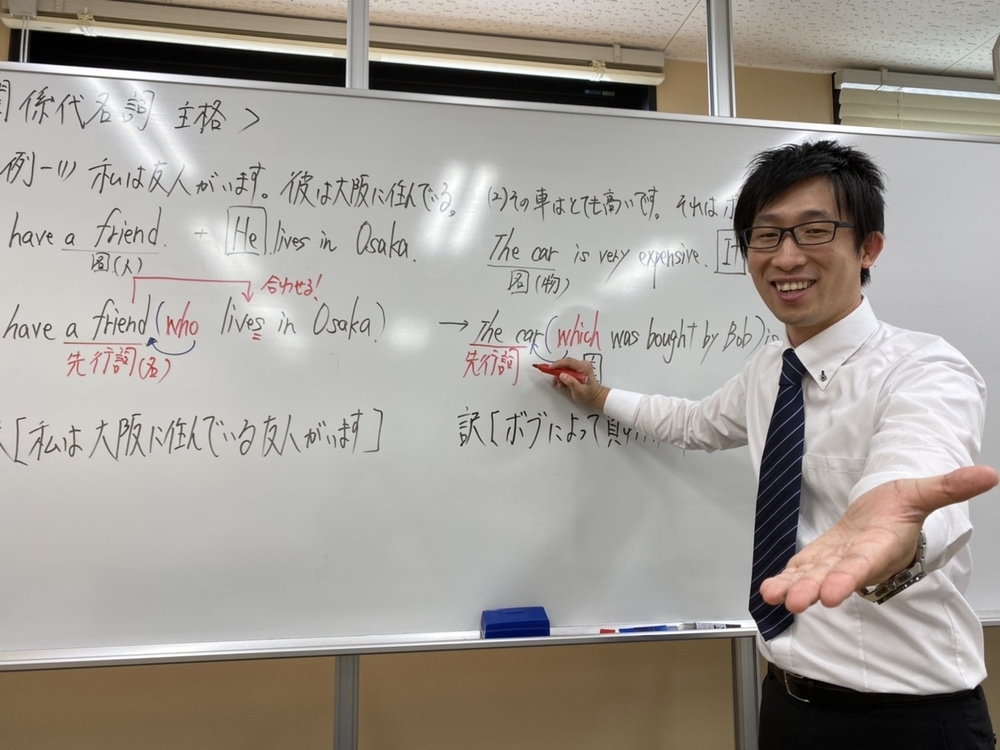 係代名詞 主格 >
例-(1) 私は友人がいます。彼は大阪に住んでいる。
have a friend. + He lives in Osaka.
名(人)
合わせる!
have a friend (who lives in Osaka)
先行詞(名)
[私は大阪に住んでいる友人がいます]
(2) その車はとても高いです。それは
The car is very expensive. It
名(物)
→ The car (which was bought by Bob) is
先行詞
訳[ボブによって買われ